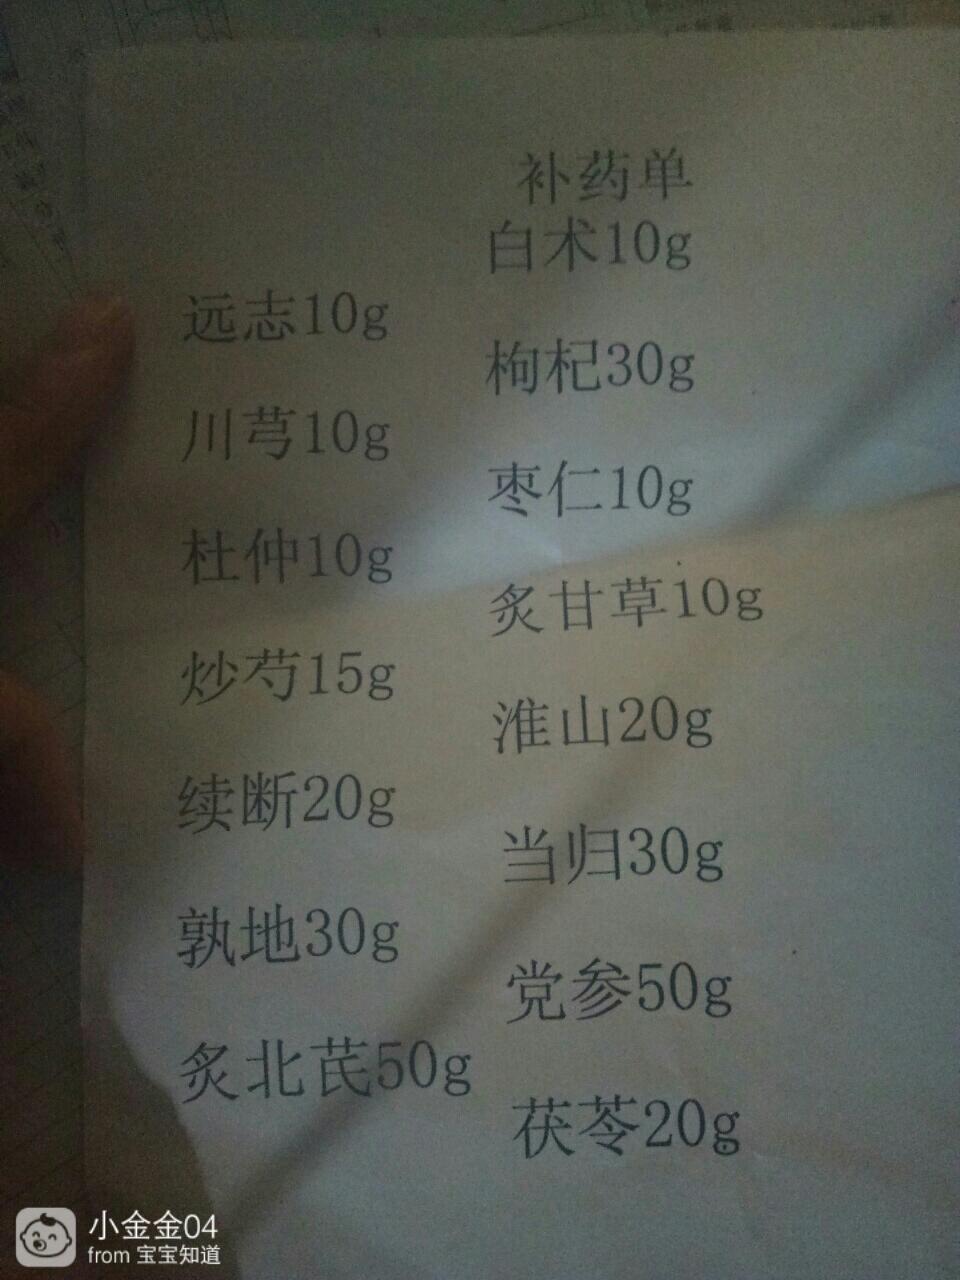 补药单
白术10g
远志10g
枸杞30g
川芎10g
枣仁10g
杜仲10g
炙甘草10g
炒芍15g
淮山20g
续断20g
当归30g
孰地30g
党参50g
炙北芪50g
茯苓20g
小金金04
from 宝宝知道